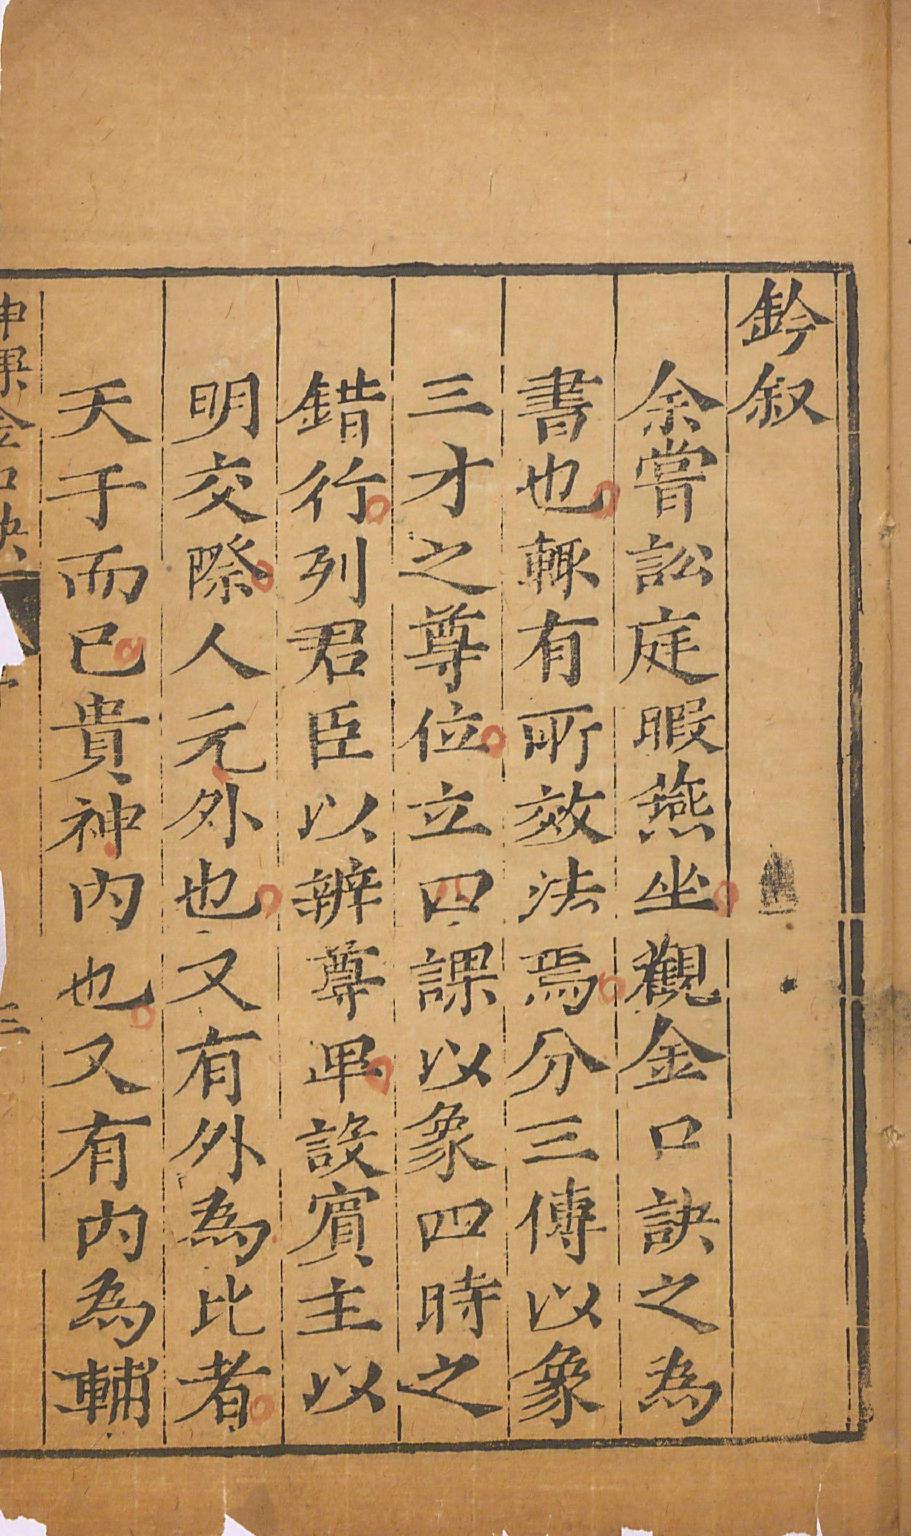 鈐叙
余嘗訟庭暇燕坐觀金口訣之為
書也輙有所效法焉分三傳以象
三才之尊位立四課以象四時之
錯行列君臣以辨尊卑設賓主以
明交際人元外也又有外為比者
天子而已貴神内也又有内為輔
神課金口訣
三